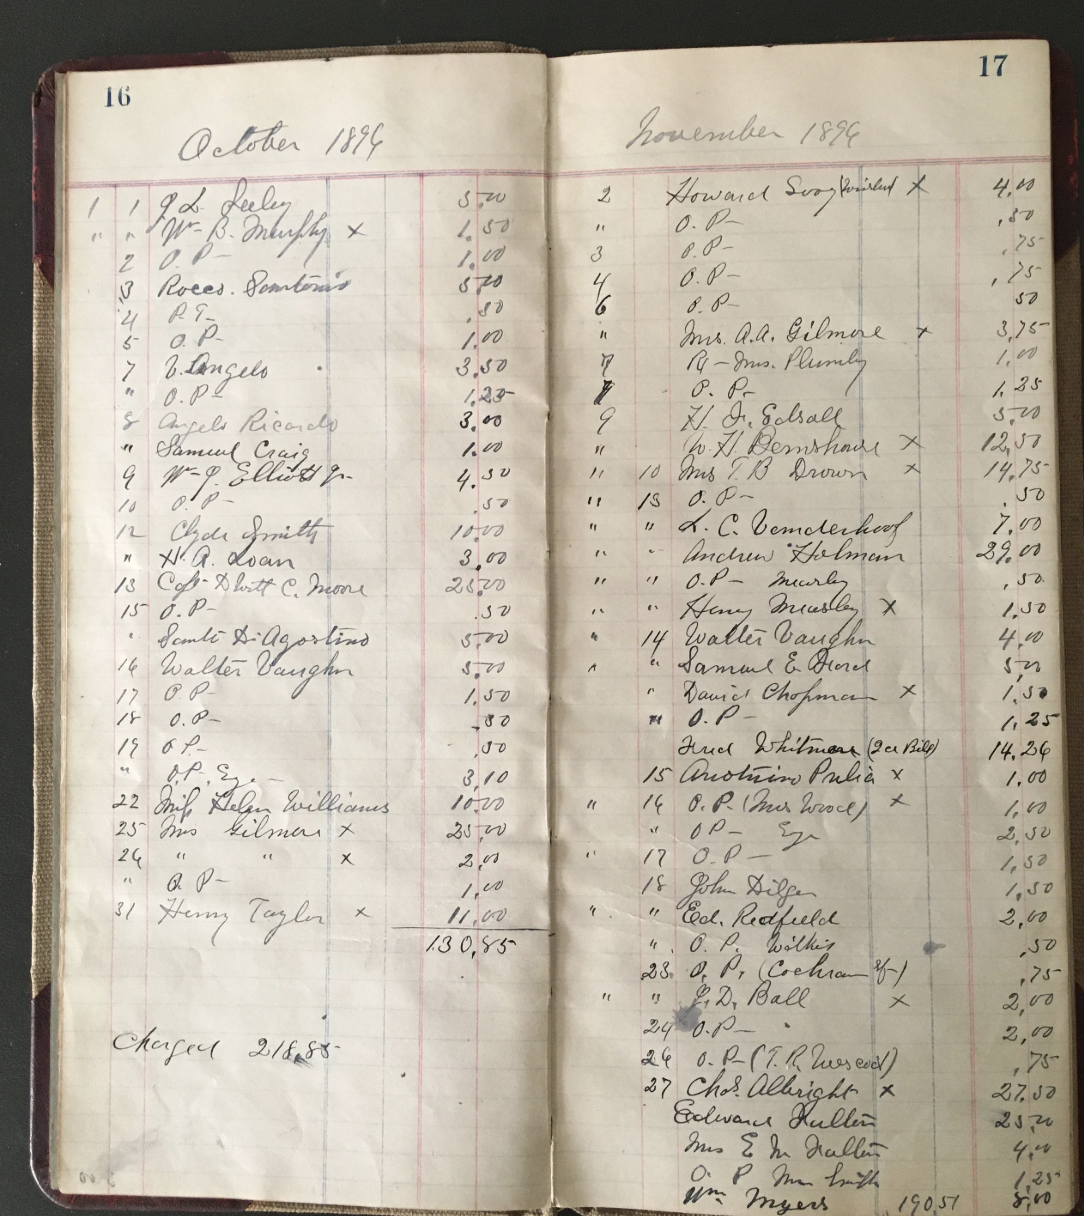 16
October 1896
1 1 J. L. Seeley 5.00
" " Wm B. Murphy x 1.50
2 O.P- 1.00
3 Rocco. Santonio 5.00
4 P.T- .50
5 O.P- 1.00
7 V. Angelo 3.50
" O.P- 1.25
8 Angelo Ricardo 3.00
" Samuel Craig 1.00
9 Wm J. Elliott Jr- 4.50
10 O.P- .50
12 Clyde Smith 10.00
" H. A. Loan 3.00
13 Capt DWitt C. Moore 25.00
15 O.P- .50
" Santi DiAgostino 5.00
16 Walter Vaughn 5.00
17 O.P- 1.50
18 O.P- .50
19 O.P- .50
" O.P. Eye- 3.10
22 Miss Helen Williams 10.00
25 Mrs Gilmore x 25.00
26 " " x 2.00
" O.P- 1.00
31 Henry Taylor x 11.00
130.85
Charged 218.85
17
November 1896
2 Howard x 4.00
" O.P- .50
3 O.P- .75
4 O.P- .75
6 O.P- 50
" Mrs. A.A. Gilmore x 3.75
7 Rx- Mrs. Plumly 1.00
O.P- 1.25
9 H. Jr. Edsall 5.00
" W. H. Bernshouse x 12.50
" 10 Mrs T. B Drown x 14.75
" 13 O.P- .50
" " L. C. Vanderhoof 7.00
" " Andrew Holman 29.00
" " O.P- .50
" " Henry x 1.50
" 14 Walter Vaughn 4.00
" " Samuel E. 5.00
" David Chapman x 1.50
" O.P- 1.25
Fred Whitmore (2 on Bill) 14.26
15 x 1.00
" 16 O.P. (Mrs Wood) x 1.00
" O.P- Eye 2.50
" 17 O.P- 1.50
18 John Dilger 1.50
" " Ed. Redfield 2.00
" O. P. .50
23 O. P. (Cochran ) .75
" " J. D. Ball x 2.00
24 O.P- 2.00
26 O.P- (T.R. Wescoat) .75
27 Chas. Albright x 27.50
Edward Fulten 25.00
Mrs E M Fulten 4.00
O. P Mrs Smith 1.25
Wm Myers 190.51 8.00